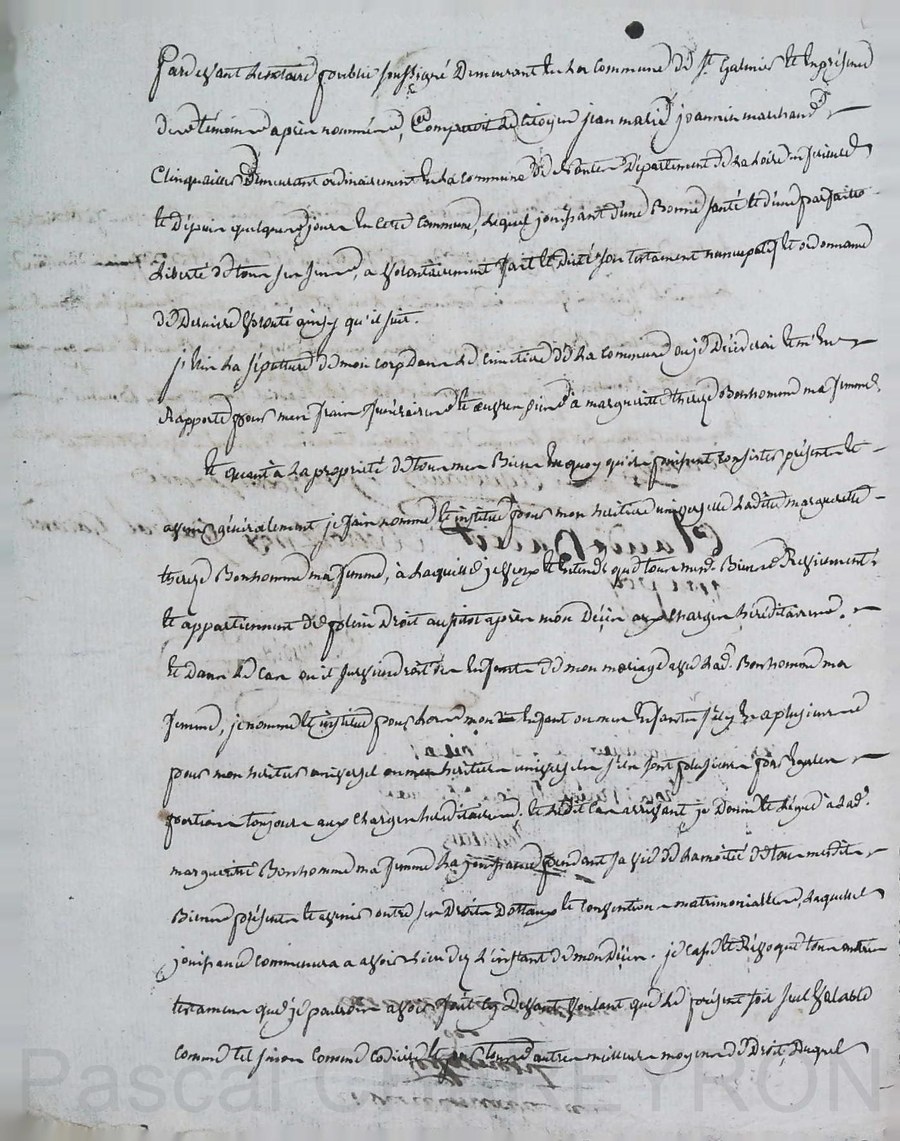 Pardevant le notaire public soussigné demeurant en la commune de St Galmier et en présence
des témoins après nommés, est comparu le citoyen jean marie joannin marchand
Clinquailler demeurant ordinairement en la commune de Nantes Département de la Loire inferieure
et depuis quelques jours en cette commune, lequel jouissant d'une Bonne santé et d'une parfaite
Liberté de tous ses sens, a volontairement fait et dicté son testament nuncupatif et ordonnance
de Derniere volonté ainsy qu'il suit.
j'élis la sépulture de mon corps dans le cimetiere de la commune ou je Décéderai et m'en
Rapporte pour mes frais funéraires et œuvres pies à marguerite thereze Bonhomme ma femme.
Et quant à la propriété de tous mes Biens en quoy qu'ils puissent consister présents et
avenir généralement je fais nomme et institue pour mon héritiere universelle ladite marguerite
thereze Bonhomme ma femme, à laquelle je veux et entends que tous mesd. Biens Reviennent
et appartiennent de plein Droit aussitot après mon Décès aux charges héréditaires.
Et dans le cas ou il surviendroit des Enfants de mon mariage avec lad. Bonhomme ma
femme, je nomme et institue pour lors mon Enfant ou mes Enfants s'il y en a plusieurs
pour mon héritier universel ou mes héritiers universels s'ils sont plusieurs par égales
portions toujours aux charges héréditaires. Et ledit cas arrivant je Donne et Lègue à lad.
marguerite Bonhomme ma femme la jouissance pendant sa vie de la moitié de tous mesdits
Biens présents et avenir outre ses Droits Dottaux et conventions matrimoniales, laquelle
jouissance commencera a avoir lieu dez l'instant de mon Décès. je casse et Révoque tous autres
testaments que je pourrois avoir fait cy Devant voulant que le présent soit seul valable
comme tel sinon comme codicile et par tous autres meilleurs moyens de Droit, Duquel
Pascal CHEYRON